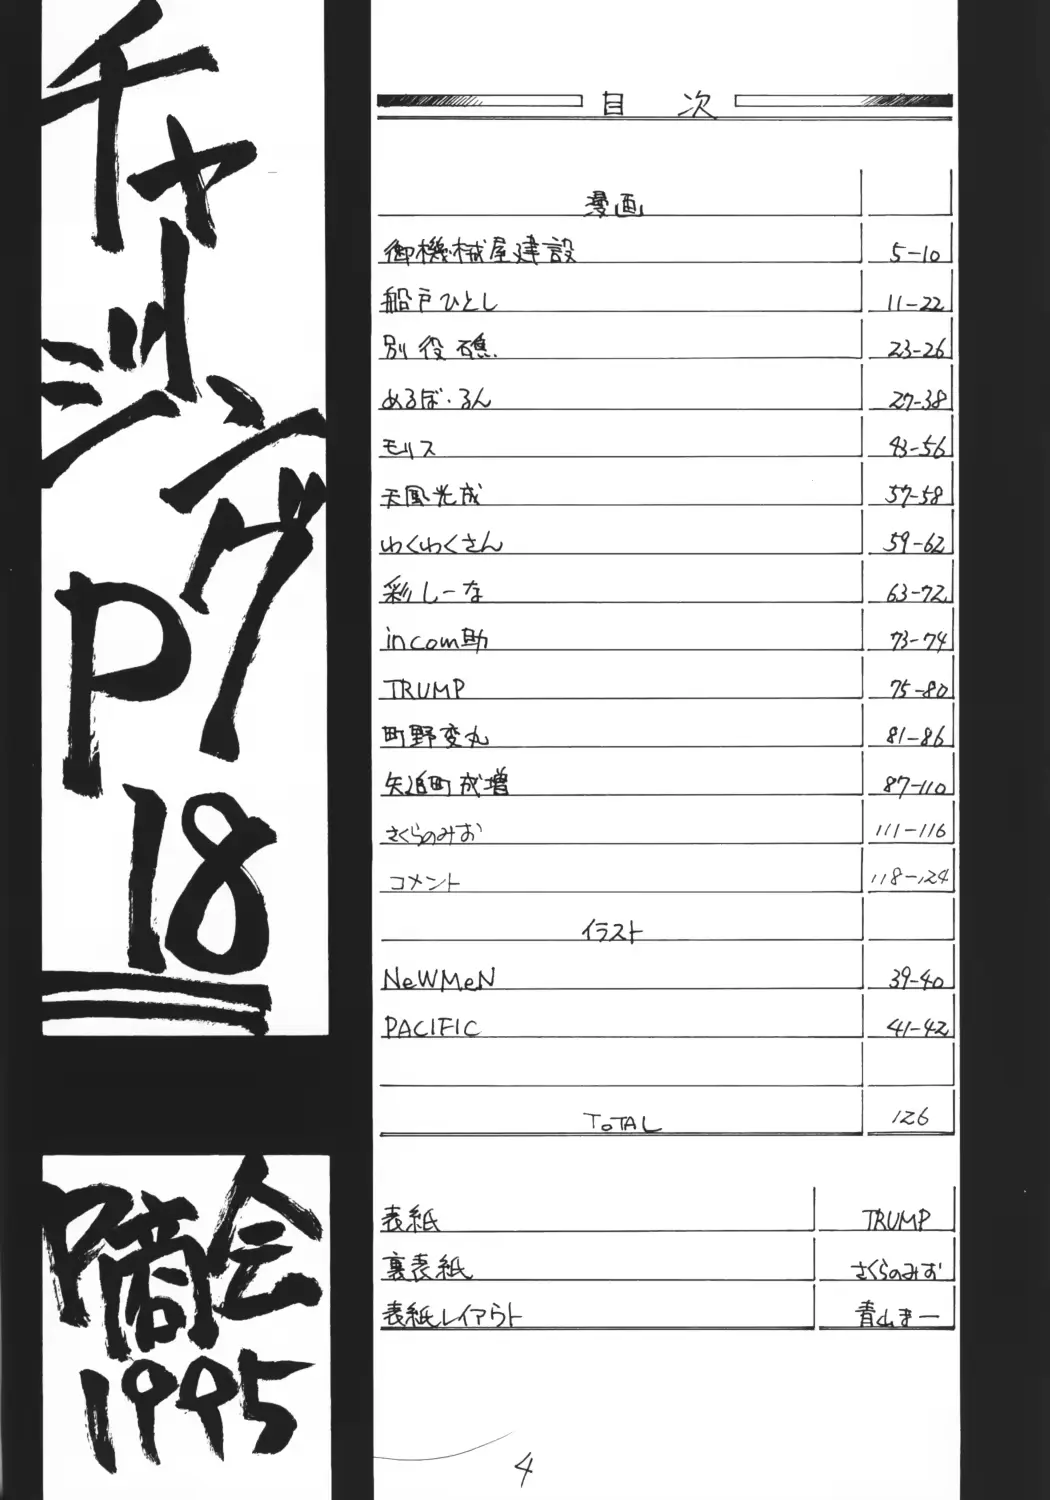 チャージングP18
P商会
1995
目次
漫画
御機械屋建設 5-10
船戸ひとし 11-22
別役礁 23-26
めるぼ・るん 27-38
モリス 43-56
天風光成 57-58
わくわくさん 59-62
彩しーな 63-72
incom助 73-74
TRUMP 75-80
町野変丸 81-86
矢追町成増 87-110
さくらのみお 111-116
コメント 118-124
イラスト
NeWMeN 39-40
PACIFIC 41-42
ToTAL 126
表紙 TRUMP
裏表紙 さくらのみお
表紙レイアウト 青山まー
4